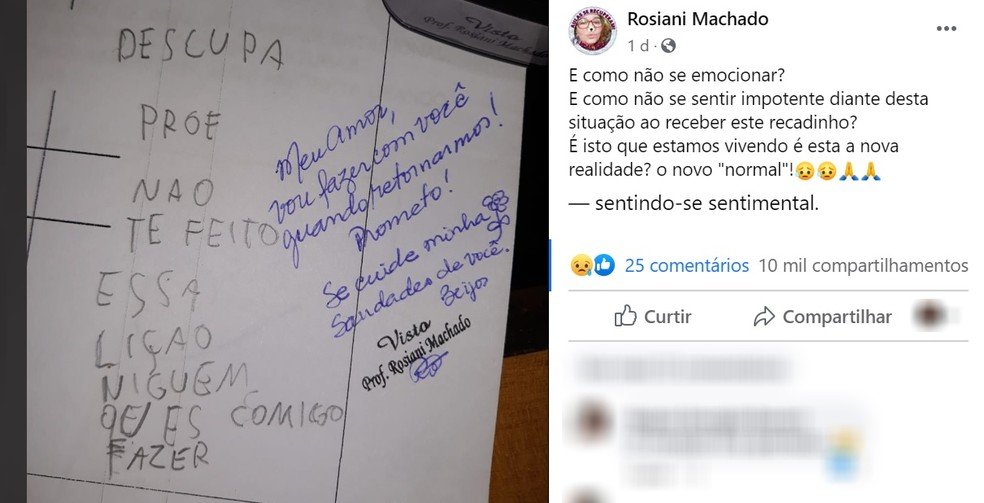 DESCUPA
PROE
NAO
TE FEITO
ESSA
LIÇAO
NIGUEM
QUES COMIGO
FAZER
Meu Amor,
vou fazer com você
quando retornarmos!
Prometo!
Se cuide minha
Saudades de você.
Beijos
Visto
Prof. Rosiani Machado
Visto
Prof. Rosiani Machado
Rosiani Machado
1 d
E como não se emocionar?
E como não se sentir impotente diante desta
situação ao receber este recadinho?
É isto que estamos vivendo é esta a nova
realidade? o novo "normal"!😥😥🙏🙏
— sentindo-se sentimental.
25 comentários 10 mil compartilhamentos
Curtir Compartilhar